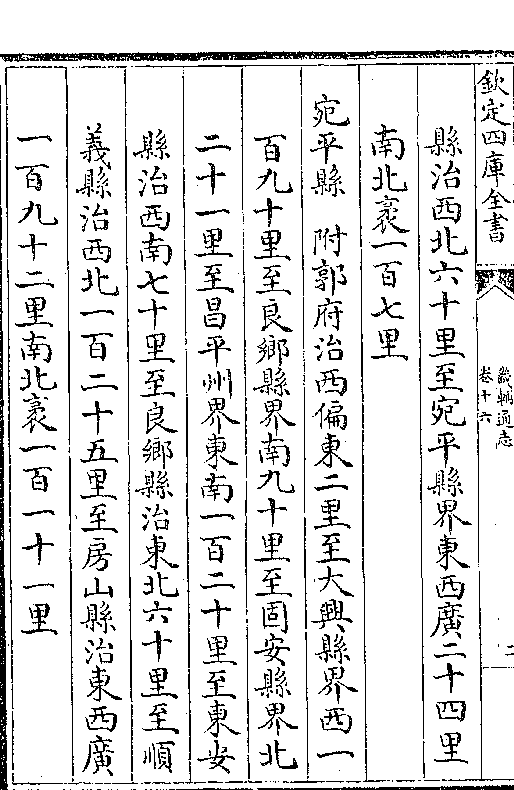 欽定四庫全書
畿輔通志
卷十六
二
縣治西北六十里至宛平縣界東西廣二十四里
南北袤一百七里
宛平縣 附郭府治西偏東二里至大興縣界西一
百九十里至良鄉縣界南九十里至固安縣界北
二十一里至昌平州界東南一百二十里至東安
縣治西南七十里至良鄉縣治東北六十里至順
義縣治西北一百二十五里至房山縣治東西廣
一百九十二里南北袤一百一十一里